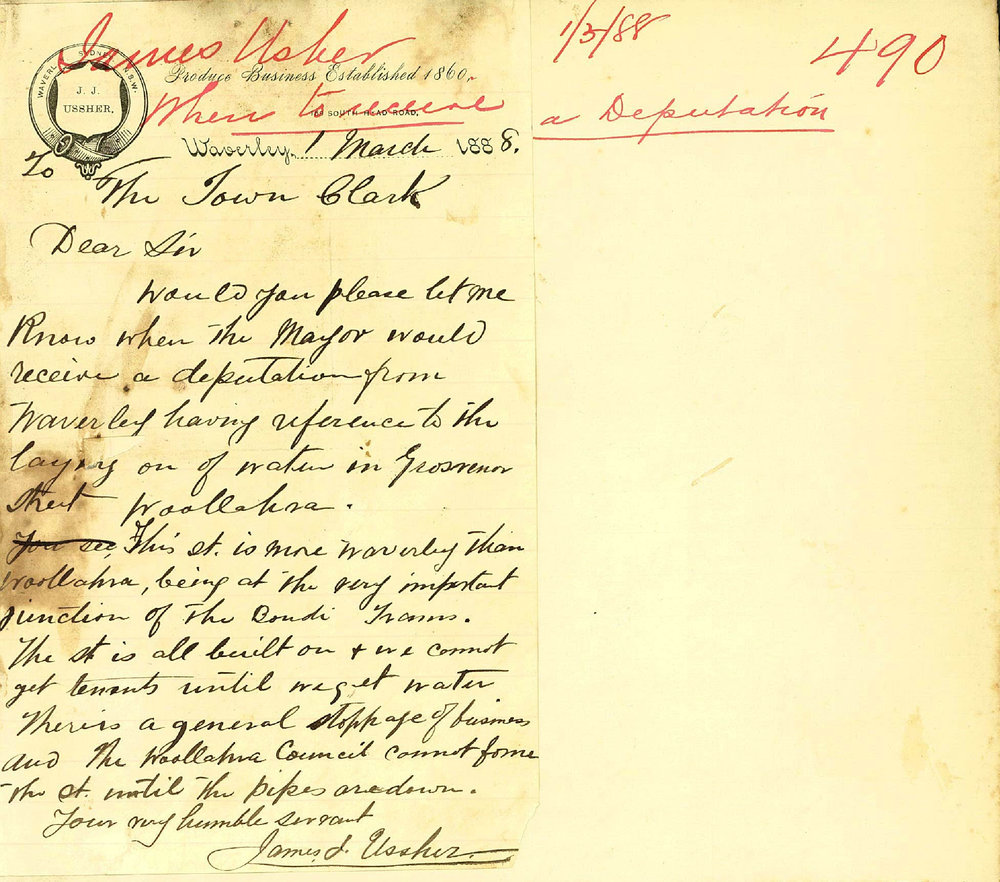 James Usher
1/3/88
490
WAVERLEY SYDNEY N.S.W.
J. J.
USSHER.
Produce Business Established 1860.
When to receive a Deputation
SOUTH HEAD ROAD,
Waverley, 1 March 1888.
To
The Town Clark
Dear Sir
Would you please let me
Know when the Mayor would
receive a deputation from
Waverley having reference to the
laying on of water in Grosvenor
street Woollahra.
You see, This st. is more Waverley than
Woollahra, being at the very important
junction of the Bondi Trams.
The st is all built on & we cannot
get tenants until we get water
There is a general stoppage of business
and the Woollahra Council cannot
the st. until the pipes are down.
Your very humble servant
James J. Ussher.